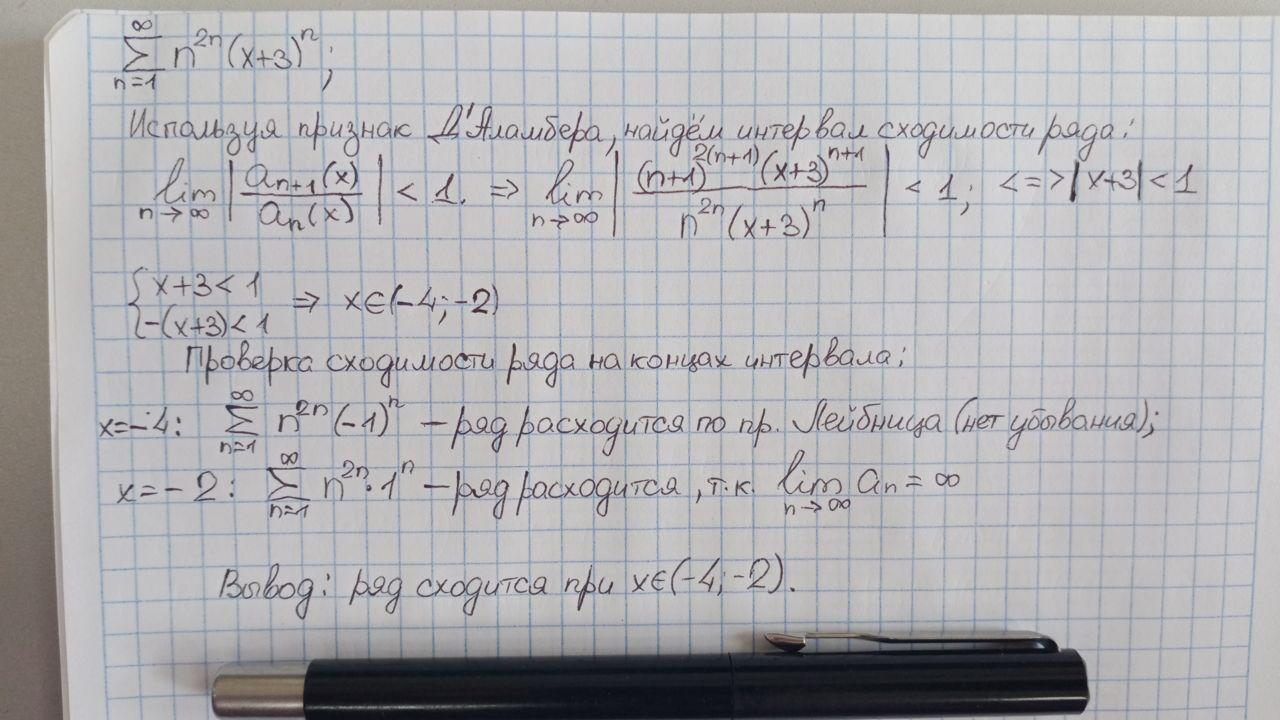 ∞
∑ n^{2n}(x+3)^n;
n=1
Используя признак Д'Аламбера, найдём интервал сходимости ряда:
lim_{n→∞} |a_{n+1}(x)/a_n(x)| < 1. ⇒ lim_{n→∞} |(n+1)^{2(n+1)}(x+3)^{n+1}/n^{2n}(x+3)^n| < 1; <=> |x+3| < 1
{x+3<1
{-(x+3)<1 ⇒ x∈(-4;-2)
Проверка сходимости ряда на концах интервала:
x=-4: ∑_{n=1}^{∞} n^{2n}(-1)^n – ряд расходится по пр. Лейбница (нет убывания);
x=-2: ∑_{n=1}^{∞} n^{2n}·1^n – ряд расходится, т.к. lim_{n→∞} a_n = ∞
Вывод: ряд сходится при x∈(-4;-2).